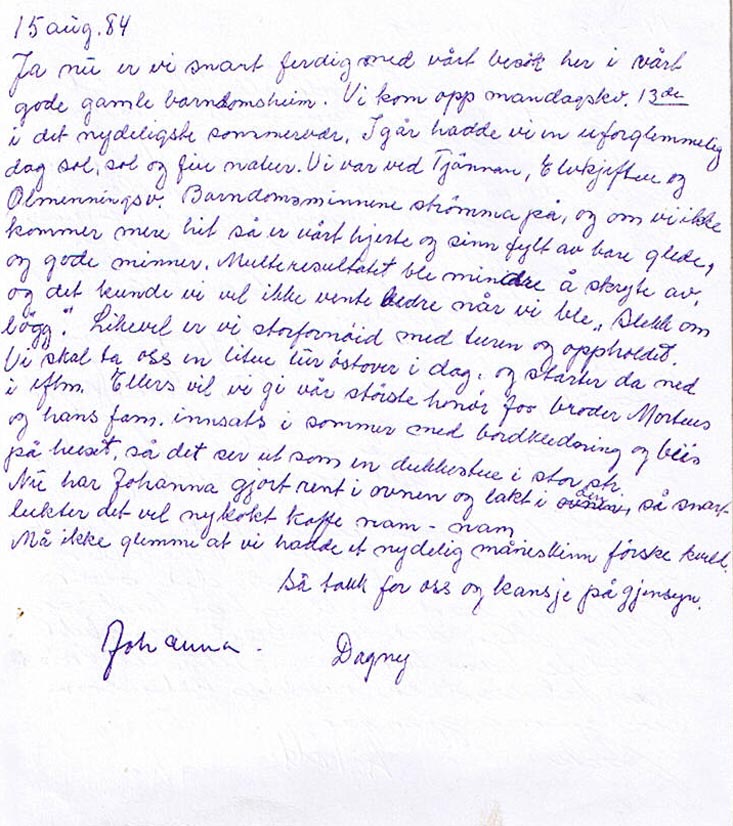 15 aug. 84
Ja nú er vi snart ferdig med vårt besök her i vårt
gode gamle barndomsheim. Vi kom opp mandagskv. 13de
i det nydeligste sommervær. Igår hadde vi en uforglemmelig
dag sol, sol og fin natur. Vi var ved Tjännan, Elvkjeften og
Ålmenningsv. Barndomsminnene strömma på, og om vi ikke
kommer mere hit så er vårt hjerte og sinn fylt av bare glede,
og gode minner. Multeresultatet ble mindre å skryte av,
og det kunde vi vel ikke vente bedre når vi ble „Stekk om
lögg". Likevel er vi storfornöid med turen og oppholdet.
Vi skal ta oss en liten túr östover i dag, og starter da ned
i eftm. Ellers vil vi gi vår störste honör for broder Mortens
og hans fam. innsats i sommer med bordkledning og beis
på huset, så det ser ut som en dukkestue i stor str.
Nú har Johanna gjort rent i ovnen og lakt i den, så snart
lukter det vel nykokt kaffe nam - nam
Må ikke glemme at vi hadde et nydelig måneskinn förske kveld.
Så takk for oss og kansje på gjensyn.
Johanna. Dagny